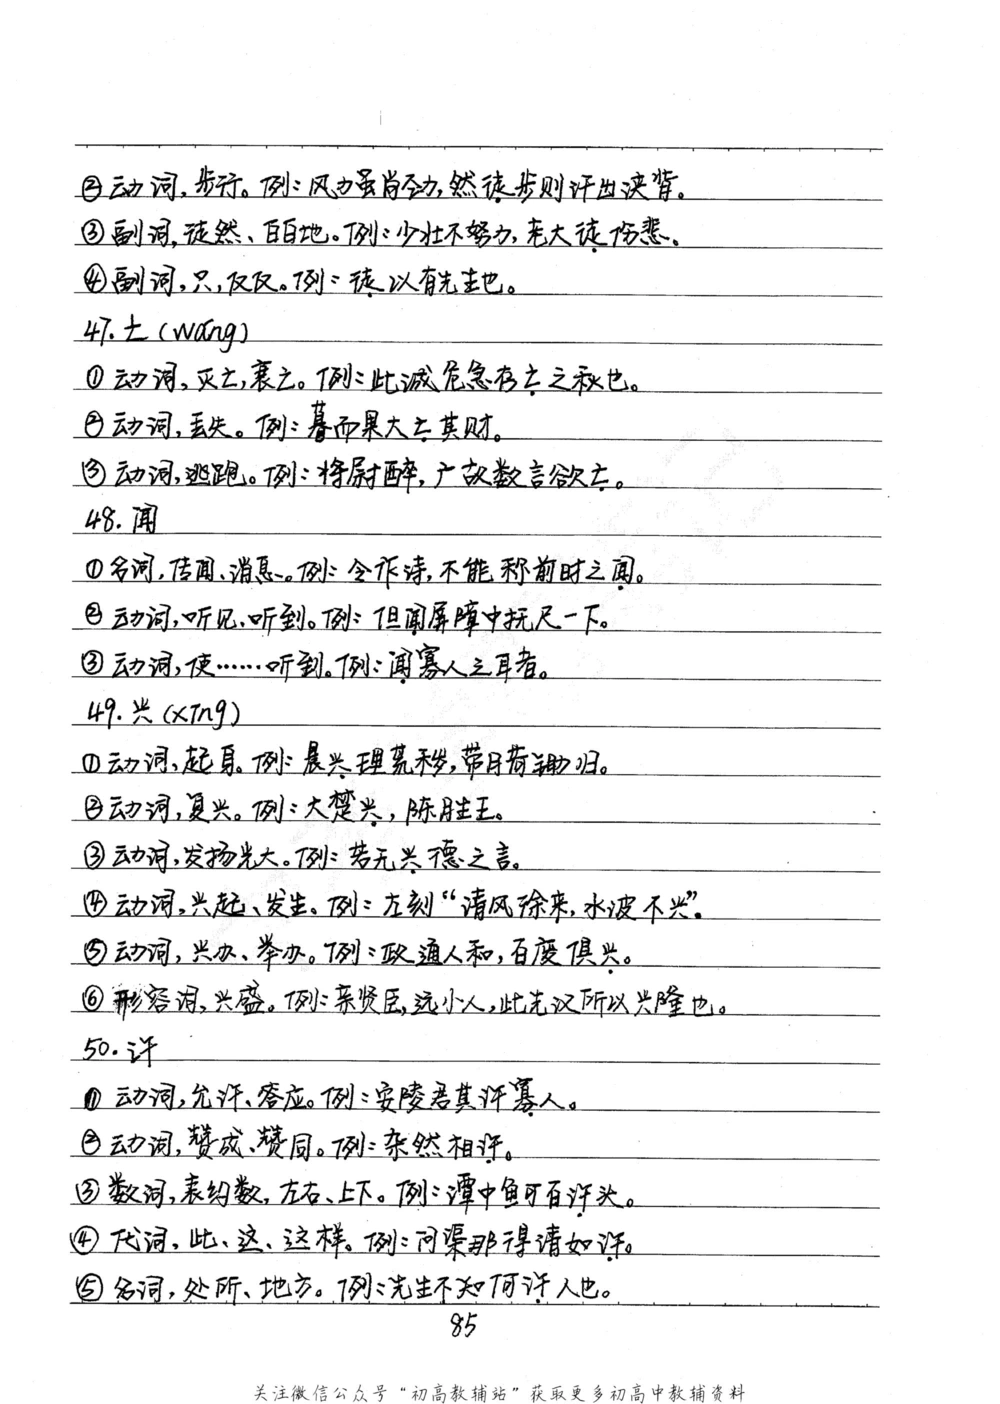 ②动词,步行。例:风力虽尚劲,然徒步则汗出浃背。
③副词,徒然、白白地。例:少壮不努力,老大徒伤悲。
④副词,只,仅仅。例:徒以有先生也。
47.亡(wáng)
①动词,灭亡,衰亡。例:此诚危急存亡之秋也。
②动词,丢失。例:暮而果大亡其财。
③动词,逃跑。例:将尉醉,广故数言欲亡。
48.闻
①名词,传闻、消息。例:令作诗,不能称前时之闻。
②动词,听见、听到。例:但闻屏障中抚尺一下。
③动词,使……听到。例:闻寡人之耳者。
49.兴(xīng)
①动词,起身。例:晨兴理荒秽,带月荷锄归。
②动词,复兴。例:大楚兴,陈胜王。
③动词,发扬光大。例:若无兴德之言。
④动词,兴起、发生。例:左刻“清风徐来,水波不兴”。
⑤动词,兴办、举办。例:政通人和,百废俱兴。
⑥形容词,兴盛。例:亲贤臣,远小人,此先汉所以兴隆也。
50.许
①动词,允许、答应。例:安陵君其许寡人。
②动词,赞成、赞同。例:杂然相许。
③数词,表约数,左右、上下。例:潭中鱼可百许头。
④代词,此、这、这样。例:问渠那得清如许。
⑤名词,处所、地方。例:先生不知何许人也。
85
关注微信公众号“初高教辅站”获取更多初高中教辅资料